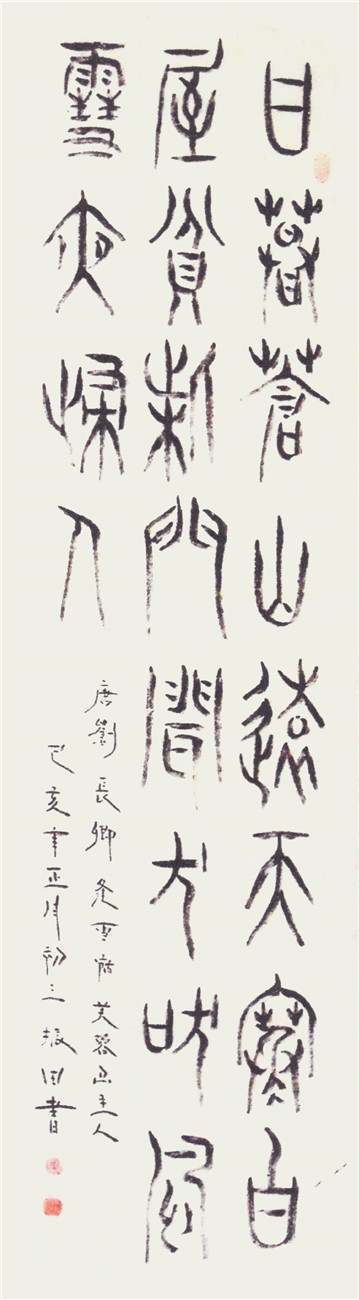 日暮蒼山遠天寒白
屋貧柴門聞犬吠風
雪夜歸人
唐劉長卿逢雪宿芙蓉山主人
己亥年正月初三振國書